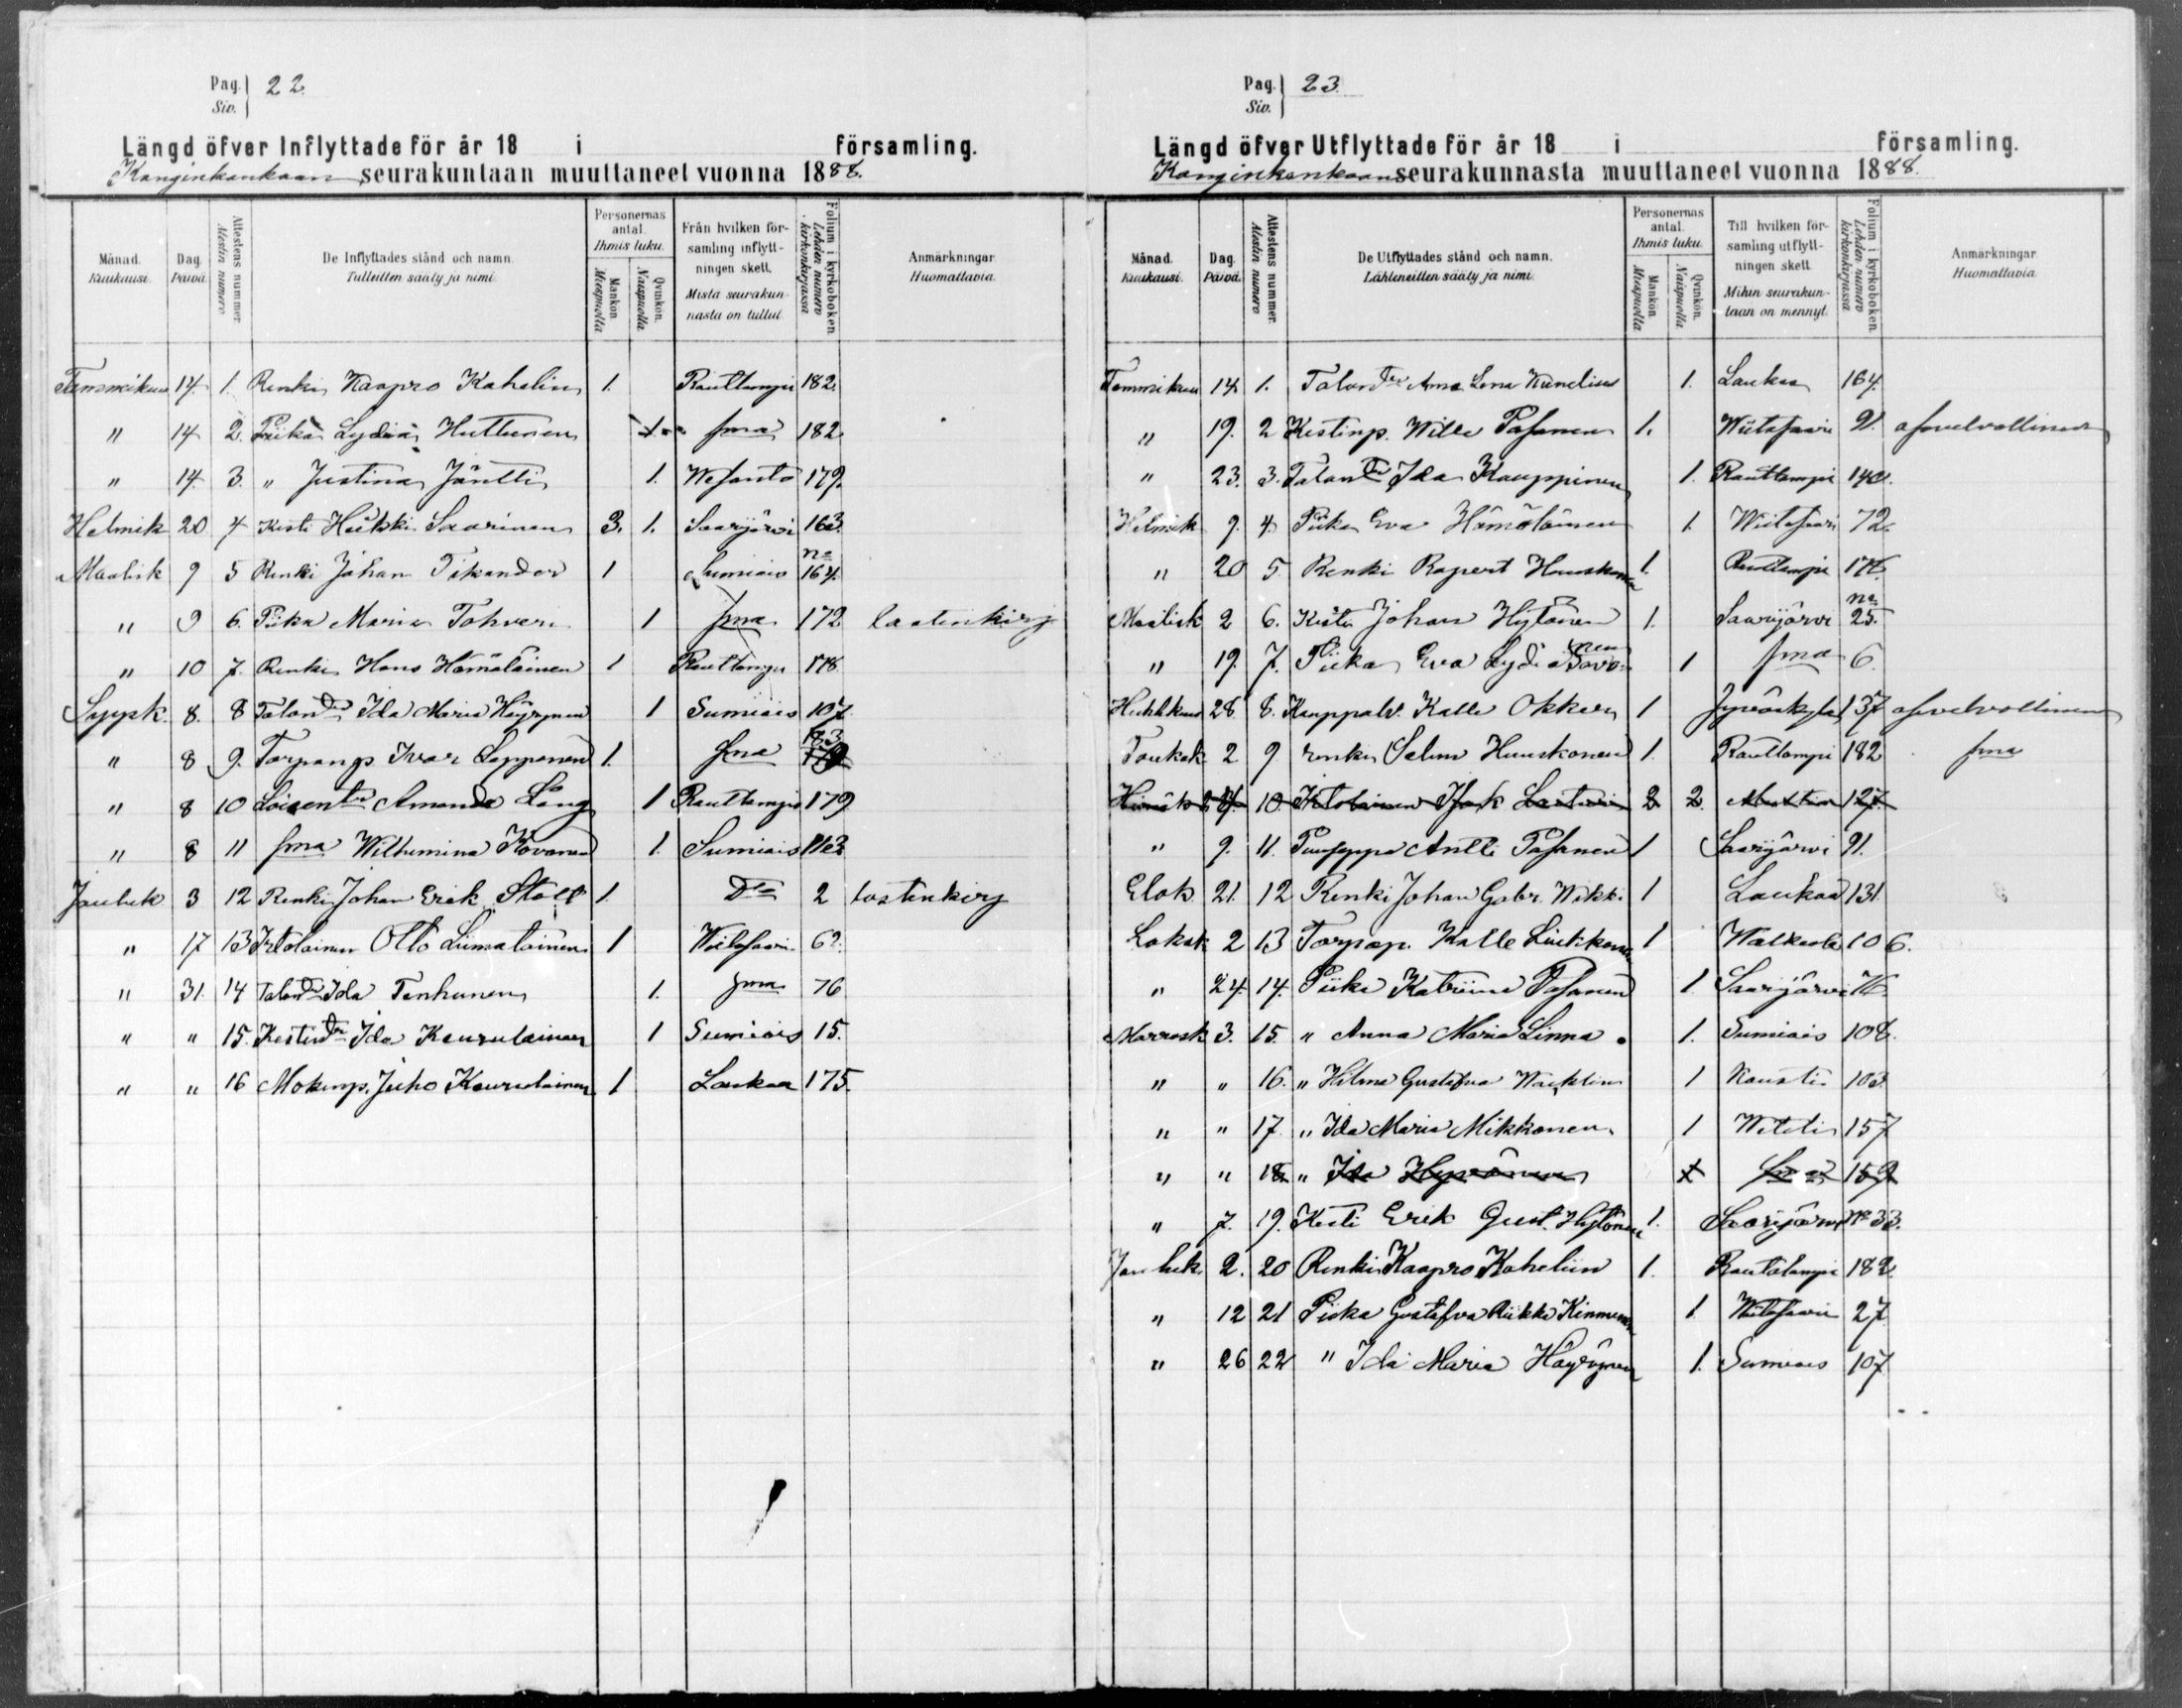 Pag. 22.
Siv.
Längd öfver Inflyttade för år 18 i församling.
Konginkankaan seurakuntaan muuttaneet vuonna 1888.
Månad. Kuukausi.
Dag. Päivä.
Attestens nummer. Atestin numero.
De Inflyttades stånd och namn. Tulleitten sääty ja nimi.
Personernas antal. Ihmis luku.
Mankön. Miespuolta
Qvinkön. Naispuolta
Från hvilken församling inflyttningen skett. Mistä seurakunnasta on tullut
Folium i kyrkoboken. Lehden numero kirkonkirjassa
Anmärkningar. Huomattavia.
Tammikuu 14. 1. Renki Kaapro Kahelin 1. Rautlampi 182.
" 14 2. Piika Lydia Huttunen 1 sma 182
" 14. 3. " Justina Jäntti 1. Wesanto 179.
Helmik 20 4 Kesti Heikki Saarinen 3. 1. Saarijärvi 163.
Maalisk 9 5 Renki Johan Tikander 1 Sumiais no 164.
" 9 6. Piika Maria Tohveri 1 sma 172 lastenkirj
" 10 7. Renki Hans Hämäläinen 1 Rautlampi 178.
Syysk. 8. 8 Talon Ida Maria Häyrynen 1 Sumiais 107.
" 8 9. Torpanp Ivar Lepponen 1. sma 183 179
" 8 10 Loisentr Amanda Lång 1 Rautlampi 179
" 8 11 sma Wilhumina Kovanen 1. Sumiais 163
Jouluk 3 12 Renki Johan Erik Ståll 1. Dto 2 lastenkirj
" 17 13 Itdolainen Otto Liimatainen 1 Wiitasaari 62.
" 31. 14 Talon Ida Tenhunen 1. sma 76
" " 15. Kestin Ida Kaurulainen 1 Sumiais 15.
" " 16 Mökinp. Juho Kaurulainen 1 Laukaa 175.
Pag. 23.
Siv.
Längd öfver Utflyttade för år 18 i församling.
Konginkankaan seurakunnasta muuttaneet vuonna 1888.
Månad. Kuukausi.
Dag. Päivä.
Attestens nummer. Atestin numero
De Utflyttades stånd och namn. Lähteneitten sääty ja nimi.
Personernas antal. Ihmis luku.
Mankön. Miespuolta
Qvinkön. Naispuolta
Till hvilken församling utflyttningen skett. Mihin seurakuntaan on mennyt.
Folium i kyrkoboken. Lehden numero kirkonkirjassa
Anmärkningar. Huomattavia.
Tammikuu 14 1. Talon Anna Lena Kunelius 1. Laukaa 164.
" 19. 2 Kestinp. Wille Pasanen 1. Wiitasaari 91. asevelvollinen
" 23. 3. Talon Ida Kauppinen 1. Rautlampi 142.
Helmik 9. 4. Piika Eva Hämäläinen 1. Wiitasaari 72.
" 20 5. Renki Rapert Huuskonen 1. Rautlampi 178.
Maalisk 2 6. Kesti Johan Hytönen 1. Saarijärvi no 25.
" 19. 7. Piika Eva Lydia Savonen 1 sma 6.
Huhtikuu 28 8. Kauppalv. Kalle Okker 1 Jyväskylä 137 asevelvollinen
Toukok 2 9 renki Salem Huuskonen 1. Rautlampi 182 sma
" 9. 11. Antti Pasanen 1 Saarijärvi 91.
Elok 21. 12 Renki Johan Gabr. Wikki 1 Laukaa 131.
Lokak 2 13 Torpap. Kalle Liekkonen 1 Walkeala 106.
" 24. 14. Piika Katriina Pasanen 1 Saarijärvi
Marrask 3. 15. " Anna Maria Linna. 1. Sumiais 108.
" " 16. " Hilma Gustafva Wäcklin 1 Kausti 103.
" " 17. " Ida Maria Mikkonen 1 Witeti 157
" " 18. " Ida Hyvönen sma 159
" 7. 19. Kesti Erik Gust. Hytönen 1. Saarijärvi no 33.
Jouluk. 2. 20 Renki Kaapro Kaheliin 1. Rautalampi 182.
" 12 21 Piika Gustafva Riikka Kinnunen 1. Wiitasaari 27.
" 26 22 " Ida Maria Häyrynen 1. Sumiais 107